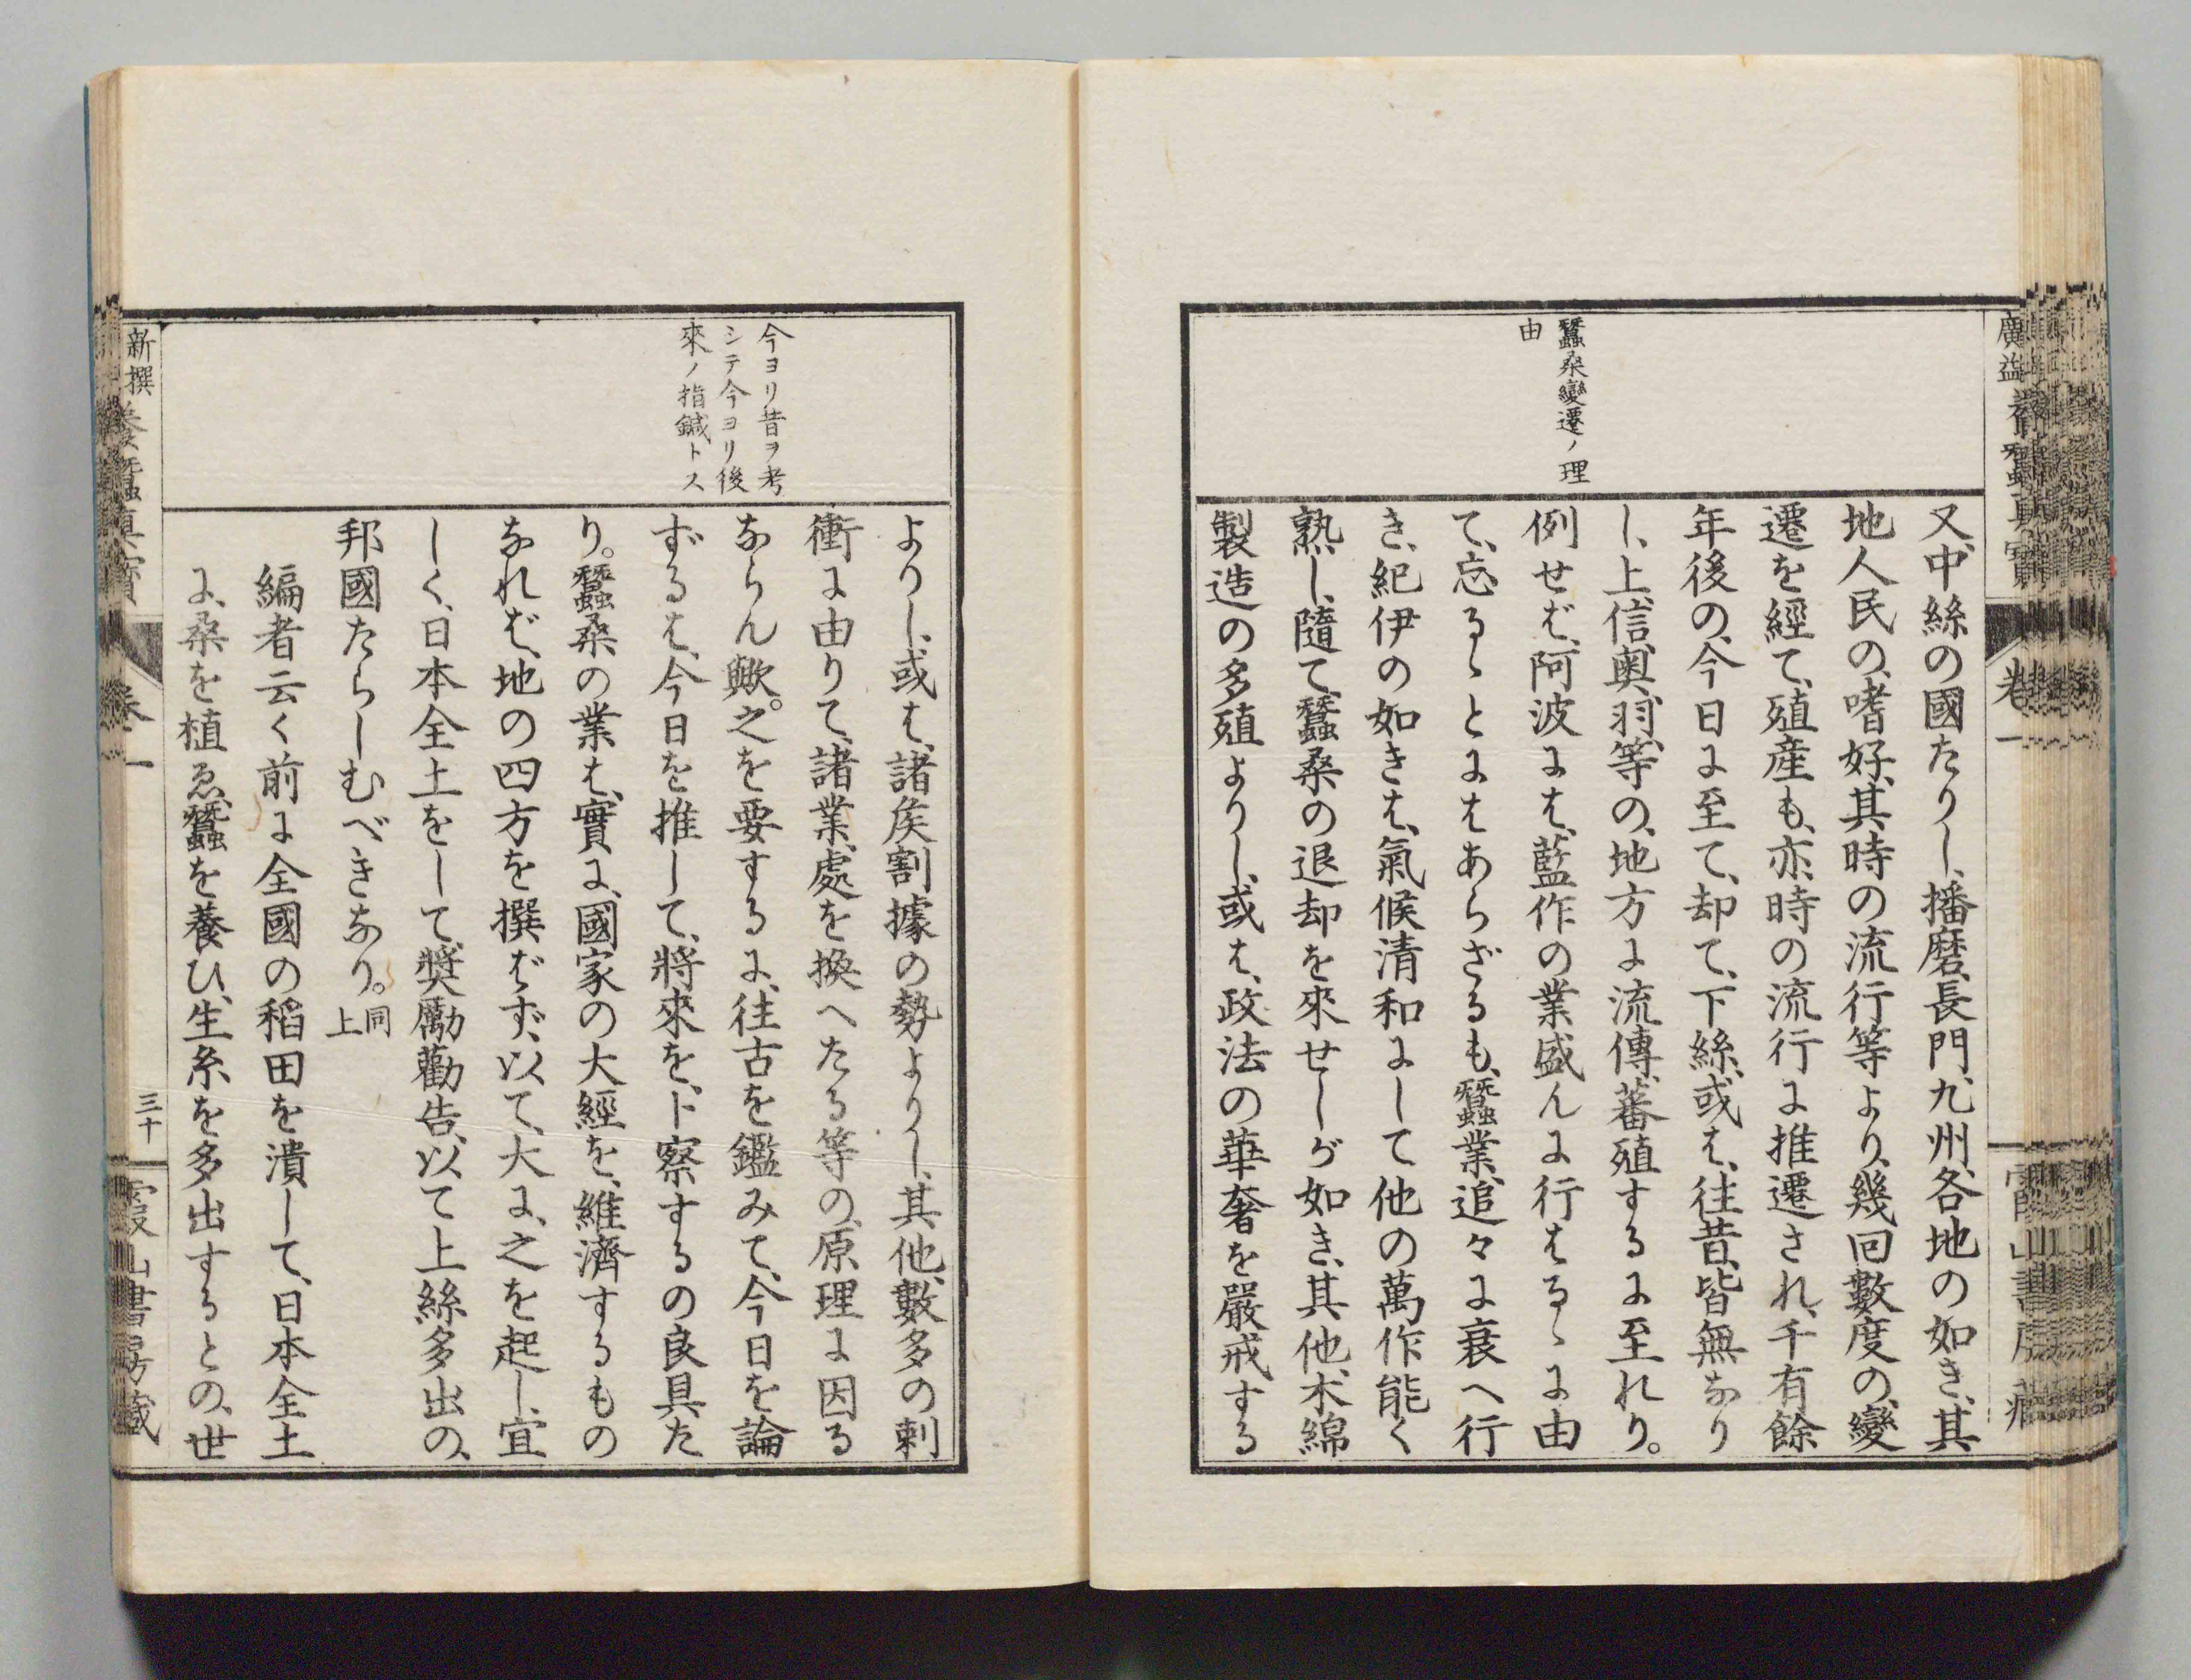 廣益養蠶眞實
卷一
蠶桒變遷ノ理
由
又、中絲の國たりし、播磨、長門、九州、各地の如き、其
地人民の、嗜好、其時の流行等より、幾回數度の、變
遷を經て、殖産も、亦時の流行に推遷され、千有餘
年後の、今日に至て、却て、下絲、或は、往昔、皆無なり
し、上、信、奥、羽、等の、地方に流傳、蕃殖するに至れり。
例せば、阿波には、藍作の業盛んに行はるゝに由
て、忘るゝとにはあらざるも、蠶業、追々に衰へ行
き、紀伊の如きは、氣候清和にして他の萬作能く
熟し、隨て、蠶桒の退却を來せしが如き、其他、木綿
製造の多殖よりし、或は、政法の華奢を嚴戒する
今ヨリ昔ヲ考
シテ今ヨリ後
來ノ指鍼トス
よりし、或は、諸矦割據の勢よりし、其他、數多の刺
衝に由りて、諸業、處を換へたる等の、原理に因る
ならん歟。之を要するに、往古を鑑みて、今日を論
ずるは、今日を推して、將來を、卜察するの良具た
り。蠶桒の業は、實に、國家の大經を、維濟するもの
なれば、地の四方を撰ばず、以て、大に、之を起し、宜
しく、日本全土をして、奬勵勸告、以て上絲多出の、
邦國たらしむべきなり。同上
編者云く前に全國の稻田を潰して、日本全土
に、桒を植ゑ、蠶を養ひ、生糸を多出するとの、世
新撰養蠶眞實
卷一
三十
霞山書房藏